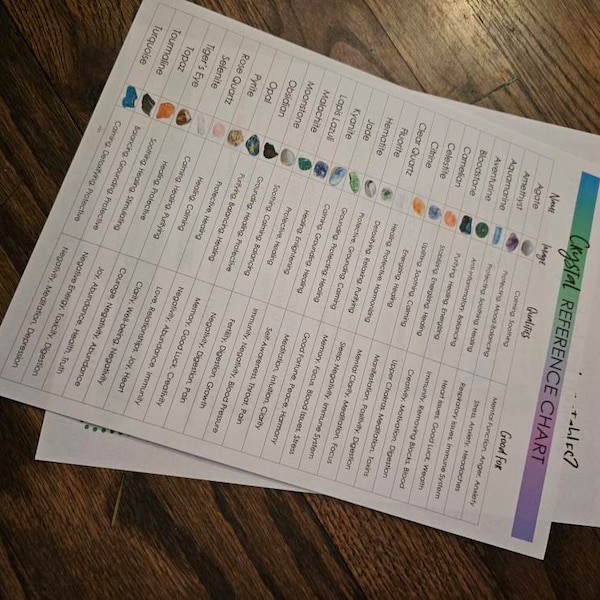 Crystal REFERENCE CHART
Name Image Qualities Good For
Agate Calming, Soothing Mental Function, Anger, Anxiety
Amethyst Protecting, Mood Balancing Stress, Anxiety, Headaches
Aquamarine Protective, Soothing, Healing Respiratory Issues, Immune System
Aventurine Anti-Inflammatory, Balancing Heart Issues, Good Luck, Wealth
Bloodstone Purifying, Healing, Energizing Immunity, Removing Blocks, Blood
Carnelian Stabilizing, Energizing, Healing Creativity, Motivation, Digestion
Celestite Uplifting, Soothing, Calming Upper Chakras, Meditation, Toxins
Citrine Energizing, Healing Manifestation, Positivity, Digestion
Clear Quartz Healing, Protective, Harmonizing Mental Clarity, Meditation, Focus
Fluorite Detoxifying, Relaxing, Purifying Stress, Negativity, Immune System
Hematite Protective, Grounding, Calming Memory, Focus, Blood Issues, Stress
Jade Grounding, Protecting, Healing Good Fortune, Peace, Harmony
Kyanite Calming, Grounding, Healing Meditation, Intuition, Clarity
Lapis Lazuli Healing, Enlightening Self Awareness, Throat, Pain
Malachite Protective, Healing Immunity, Negativity, Blood Pressure
Moonstone Soothing, Calming, Balancing Fertility, Digestion, Growth
Obsidian Grounding, Healing, Protective Negativity, Digestion, Pain
Opal Purifying, Balancing, Healing Memory, Good Luck, Creativity
Pyrite Protective, Healing Negativity, Abundance, Immunity
Rose Quartz Healing, Calming Love, Relationships, Joy, Heart
Selenite Calming, Healing, Purifying Clarity, Well-being, Negativity
Tiger's Eye Healing, Protective Courage, Negativity, Abundance
Topaz Soothing, Healing, Stimulating Joy, Abundance, Health, Truth
Tourmaline Balancing, Grounding, Protective Negative Energy, Toxicity, Digestion
Turquoise Calming, Detoxifying, Protective Negativity, Meditation, Depression